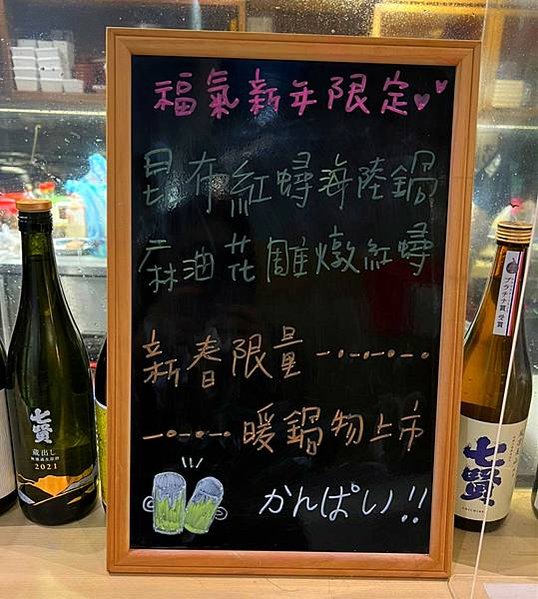 福氣新年限定
昆布紅蟳海陸鍋
麻油花雕燉紅蟳
新春限量
暖鍋物上市
かんぱい!!
七賢
蔵出し
2021
プラチナ賞 受賞
七賢